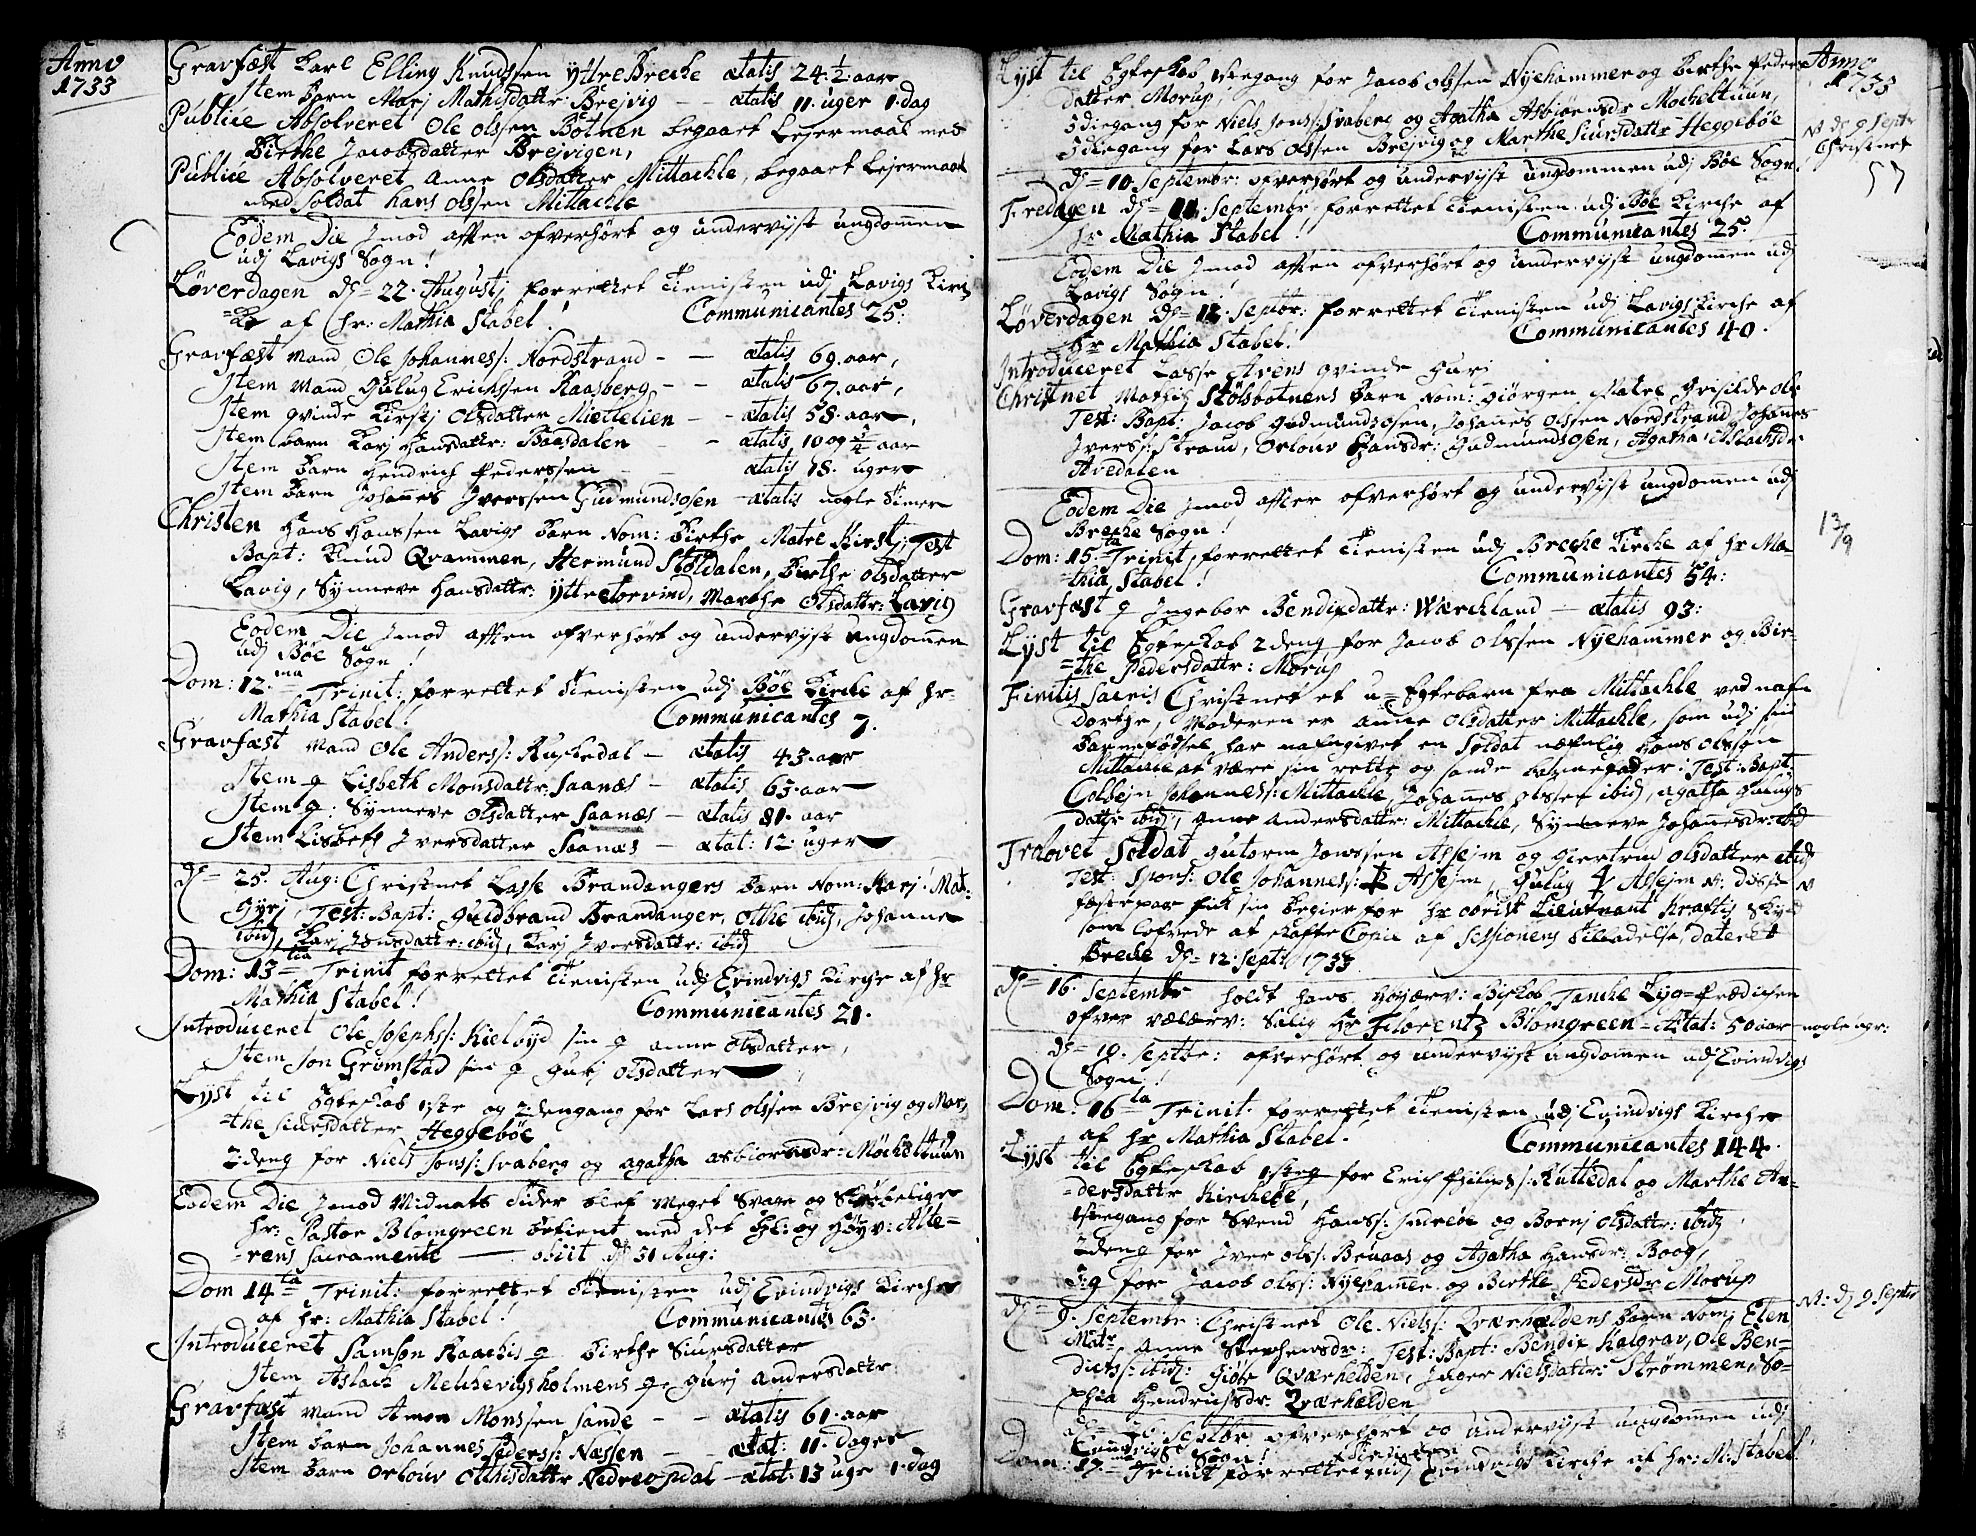 Anno
1733
Gravfæst Karl Elling Knudssen Yttre Breche ætatis 24 1/2 aar
Item barn Marj Mathisdattr: Brejvig - - ætatis 11. uger 1. dag
Publice Absolveret Ole Olssen Bøtnen begaaet Lejermaal med
Birthe Jacobsdatter Brejvigen,
Publice Absolveret Anne Olsdatter Mittachle, begaaet Lejermaal
med Soldat hans Olssen Mittachle
Eodem Die Imod afften ofverhørt og undervjst ungdommen
udj Lavigs Sogn!
Løverdagen d= 22. Augustj forrettet Tienisten udj Lavigs Kirch
=ke af Hr: Mathia Stabel! Communicantes 25.
Gravfæst mand Ole Johanness: Nordstrand - - ætatis 69. aar,
Item mand Gulug Erichssen Raasberg - - ætatis 67. aar,
Item qvinde Kirstj Olsdatter Mettelien - - ætatis 58. aar,
Item barn Karj Hansdattr: Baasdalen - - ætatis 10 og 3/4 aar
Item barn Hendrich Pederssen - - ætatis 18. uger
Item barn Johannes Iverssen Gudmundsøsen - ætatis nogle Timer
Christen Hans Hanssen Lavigs barn Nom: Birthe Matre Kirstj, Test
Bapt: Knud Qvammen, Hermund Støldalen, Birthe Olsdatter
Lavig, Synneve Hansdattr: Yttretorvind, Marthe Olsdattr: Lavig
Eodem Die Imod afften ofverhørt og undervjst ungdommen
udj Bøe Sogn!
Dom: 12.ma Trinit: forrettet Tienisten udj Bøe Kirche af Hr
Mathia Stabel! Communicantes 7.
Gravfæst mand Ole Anderss: Rusledal - ætatis 43. aar
Item q Lisbeth Monsdattr: Saanæs - ætatis 63. aar
Item q: Synneve Olsdatter Saanæs - ætatis 81. aar
Item Lisbeth Iversdatter Saanæs - ætat: 12. uger
d= 25. Aug: Christnet Lasse Brandangers barn Nom: Karj. Mat:
Gyrj, Test: Bapt: Guldbrand Brandanger, Otthe ibid, Johanne
ibid, Karj Jonsdattr: ibid, Karj Iversdattr: ibid
Dom: 13tia Trinit forrettet Tienisten udj Evindvigs Kirche af Hr
Mathia Stabel! Communicantes 21.
Introduceret Ole Josephs: Kielbyd sin q anne Olsdatter,
Item Jon Grimstad sin q gurj Olsdatter
Lyst til Egteskab 1ste og 2dengang for Lars Olssen Brejvig og Mar,
=the Siursdatter Heggebøe
2deng for Niels Jonss: Svaberg og agatha asbiornsdr: Møcheltuun
Eodem Die Imod Midnats Tider blef Meget Svage og Skrøbelige
hr: Pastor Blomgreen betient med det Hl: og Høyv: Alte=
=rens Sacramente - obiit d 31 Aug:
Dom 14ta Trinit: forrettet Tienisten udj Evindvigs Kirche
af hr: Mathia Stabel! Communicantes 63.
Introduceret Samson Raachis q Birthe Siursdatter
Item Aslach Melchevigsholmens q gurj andersdatter
Gravfæst mand Amon Monssen Sande - - ætatis 61. aar
Item barn Johannes Pederss: Næssen - - ætat: 11. dager
Item barn Orlouv Otthisdattr Nedreopdal - ætat: 13 uge 1. dag
Lyst til Egteskab 1stegang for Jacob Olssen Nyehammer og Birthe Peders
datter Morup,
3diegang for Niels Jonss: Svaberg og Agatha Asbiørnsdr Mocheltuun,
3diegang for Lars Olssen Brejvig og Marthe Siursdattr Heggebøe
d= 10. Septembr: ofverhørt og undervjst ungdommen udj Bøe Sogn.
Fredagen d= 11. Septembr forrettet Tienisten udj Bøe Kirche af
hr Mathia Stabel! Communicantes 25.
Eodem Die Imod afften ofverhørt og undervjst ungdomen udj
Lavigs Sogn!
Løverdagen d= 12. Septbr: forrettet Tienisten udj Lavigs Kirche af
Hr Mathia Stabel! Communicantes 40.
Introduceret Lasse Arens qvinde Guri
Christnet Mathis Stølsbotnens barn Nom: Giørgen Matre Grisilde Ols
Test: Bapt: Jacob Gudmundsosen, Johanes Olssen Nordstrand, Johanes
Iverss: Strand, Orlouv Hansdr: Gudmundsosen, Agatha Aslachsdr
Avedalen
Eodem Die Imod affter ofverhørt og undervjst ungdommen udj
Breche Sogn!
Dom: 15ta Trinit, forrettet Tienisten udj Breche Kirche af hr Ma-
=thia Stabel! Communicantes 54:
Gravfæst q Ingebor Bendixdattr: Wærchland - ætatis 93:
Lyst til Egteskab 2deng for Jacob Olssen Nyehammer og Bir-
=the Pedersdattr: Morup
Finitis Sacris Christnet et u=Egtebarn fra Mittachle ved nafn
Dorthe, Moderen er anne Olsdatter Mittachle, som udj sin
barnefødsel har nafngivet en Soldat næfnlig Hans Olssøn
Mittachle at være sin rette og sande barnefader: Test: Bapt
Colbejn Johanness: Mittachle, Johannes Olssen ibid, agatha Gulugs
dattr ibid, Anne Andersdattr: Mittachle, Synneve Johannesdr: ibid
Trolovet Soldat Gutorm Jonssen Assejm og Giertrud Olsdatter ibid
Test: Spons: Ole Johanness: Assejm, Gulug Assejm Nt: Disse
fæstepar fick sin begier for hr Obrist Lieutnant Kraftis Skyld
som lofvede at skaffe Copie af Sessionens Tilladelse dateret
Breche d= 12. Sept: 1733
d= 16. Septembr holdt hans Høyærv: Biskob Tanche Lyg=Prædichen
ofver velærv: Salig Hr Florentz Blomgreen - Ætat: 50 aar nogle ugr:
d= 19. Septbr: ofverhørt og undervjst ungdommen udj Evindvigs
Sogn!
Dom: 16ta Trinit. forrettet Tienisten udj Evindvigs Kirche
af hr Mathia Stabel. Communicantes 144.
Lyst til Egteskab 1steg for Erich Philips: Ruttedal og Marthe An-
=dersdattr Kirchebøe,
1stegang for Svend Hanss: Indreøe og Bornj Olsdattr: ibid
2deng for Iver Olss: Bruaas og Agatha Hansdr: Boog,
3:g for Jacob Olss: Nyehamer og Birthe Pedersdr Morup
d= 9. Septembr: Christnet Ole Nielss: Qværheldens barn Nom: Elen
Matr Anne Stephensdr: Test: Bapt: Bendix Halgrav, Ole Ben-
dicts: ibid: Giør Qværhelden, Inger Nielsdatter Strømmen, So=
phia Hendrichsdr. Qværhelden
d 26 Septbr ofverhørt og undervjst ungdommen udj
Evindvigs Sogn!
Dom: 17ma Trinit forrettet Tienisten udj Evindvigs Kirche af hr: M: Stabel!
Anno
1733
Nt d 9 Septr
Christnet
57
13/9
Nt: d 9 Septr